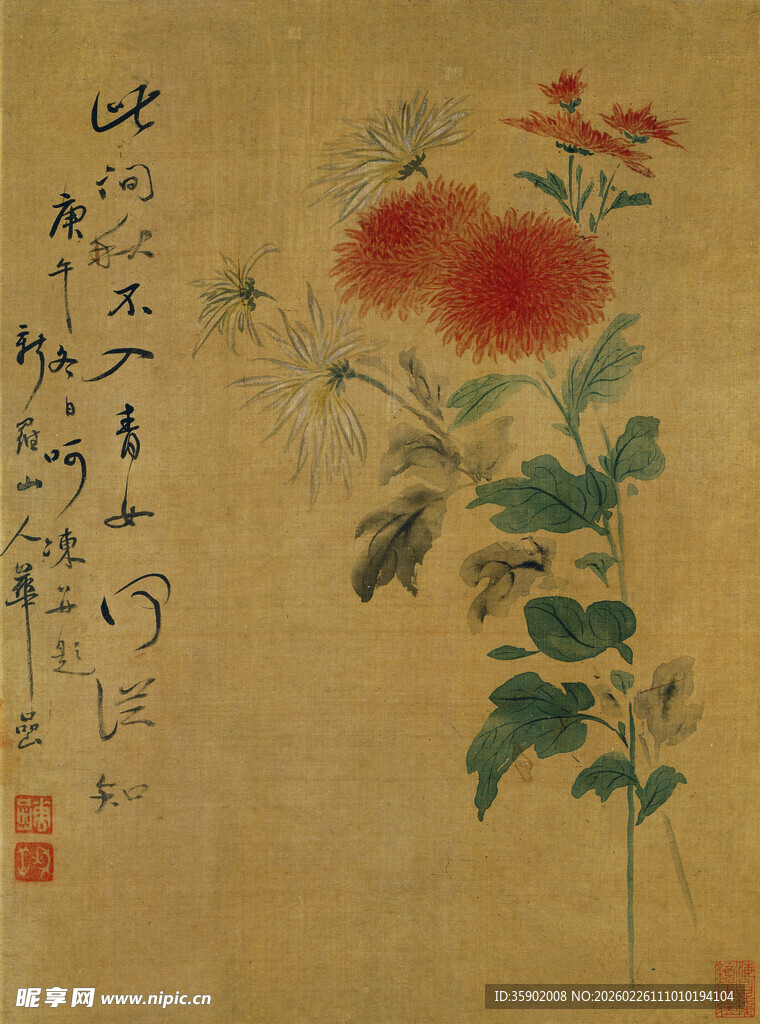 此间秋不入青女何从知
庚午冬日呵冻并题
新罗山人华喦
昵享网 www.nipic.cn
ID:35902008 NO:20260226111010194104